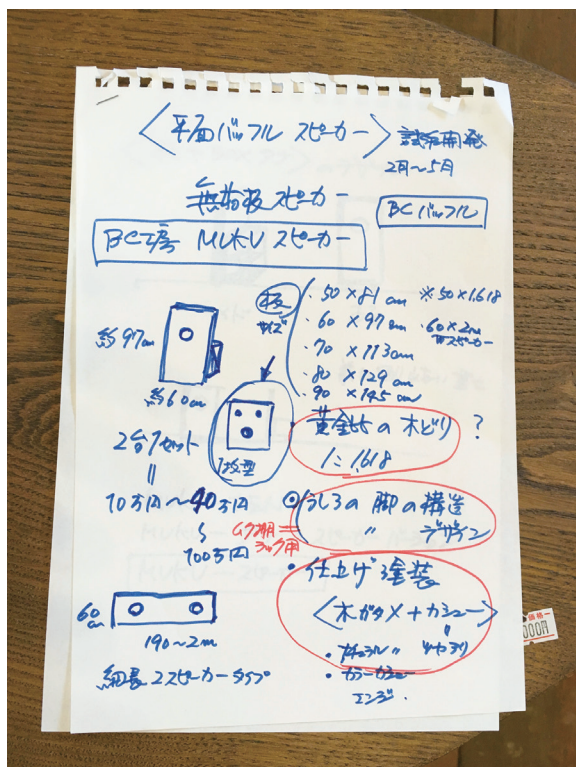 〈平面バッフル スピーカー〉試作開発
2月〜5月
無垢板スピーカー
BCバッフル
BC工房 MUKU スピーカー
板
サイズ
・50×81cm ※50×1.618
・60×97cm
・60×2m
スピーカー
・70×113cm
・80×129cm
・90×145cm
約97cm
約60cm
1枚型
黄金比の木どり ?
1:1.618
2台1セット
〃
10万円〜40万円
〜
100万円
◎うしろの脚の構造
〃 デザイン
ムク用
・仕上げ塗装
〈木ガタメ+カシュー〉
・ナチュラル 〃 ツヤあり
・カラーカシュー
エンジ.
60cm
190〜2m
細長2スピーカータイプ
000円